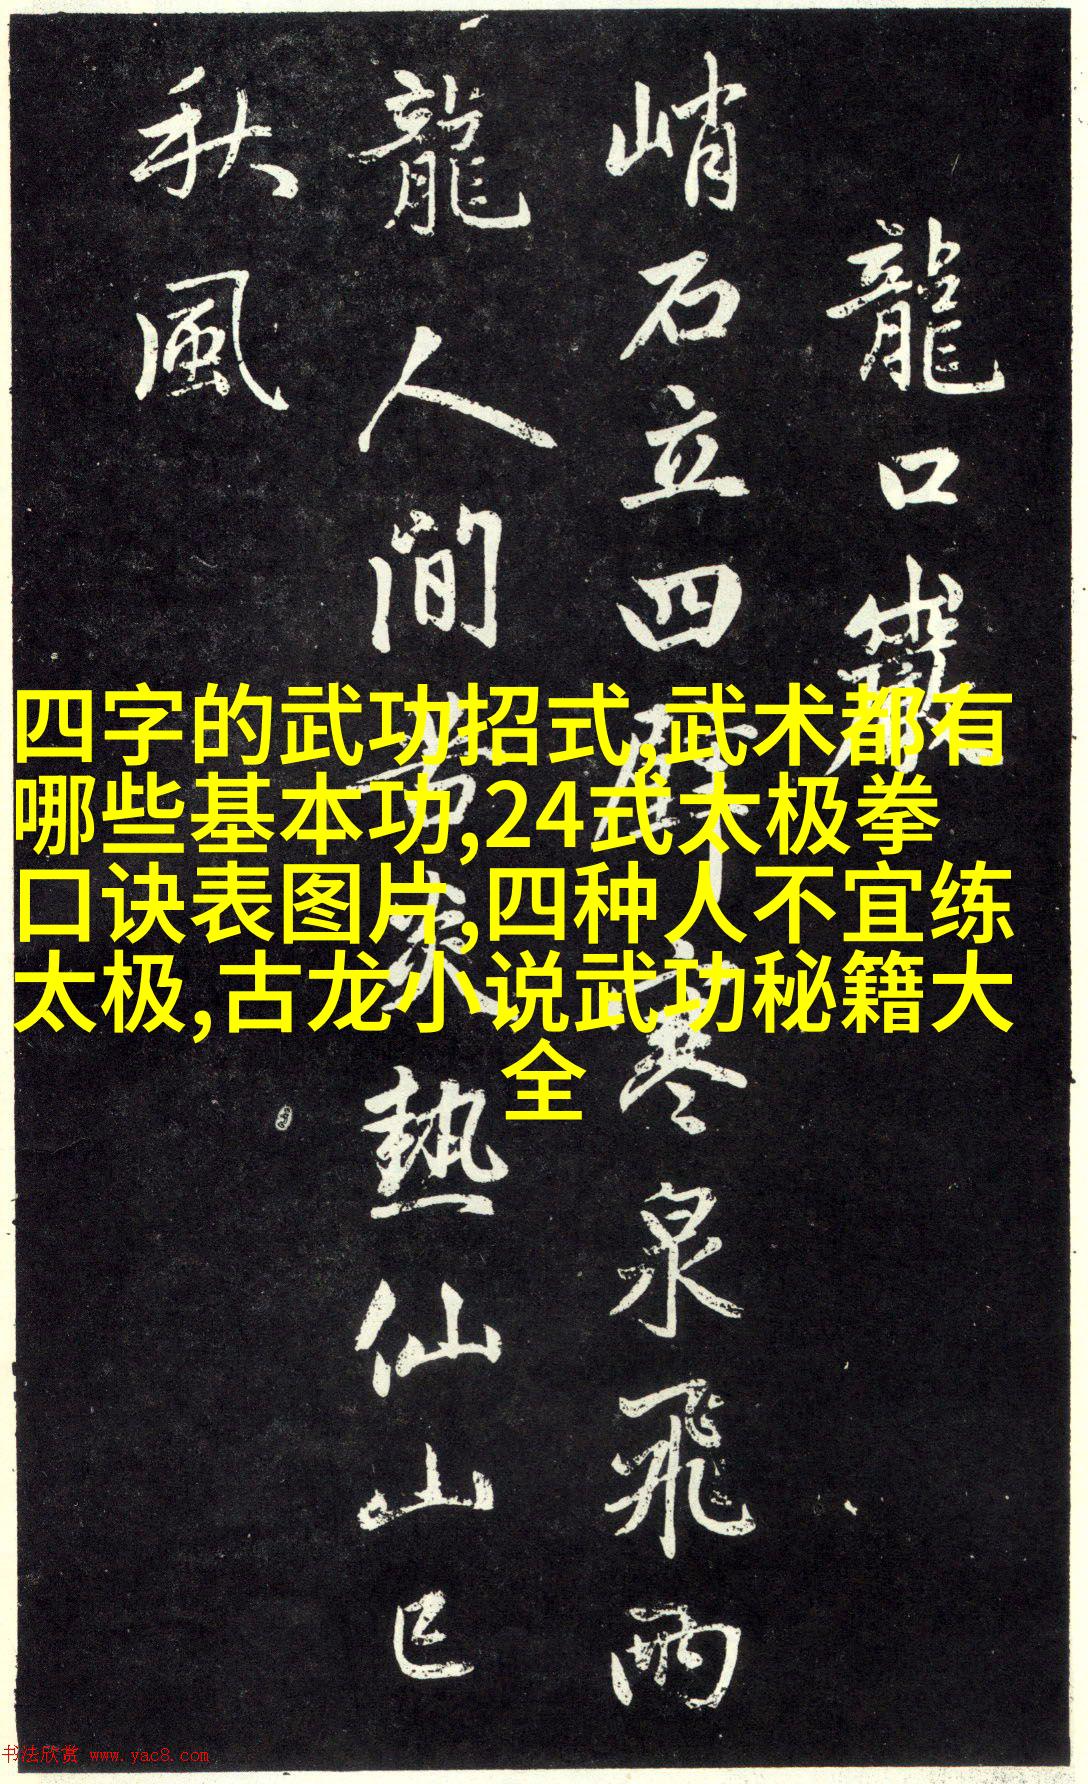 龍口巖
峭石立四壁寒泉飛雨
龍人間苦炎熱仙山已
秋風
四字的武功招式,武术都有
哪些基本功,24式太极拳
口诀表图片,四种人不宜练
太极,古龙小说武功秘籍大
全
书法欣赏 www.yac8.com